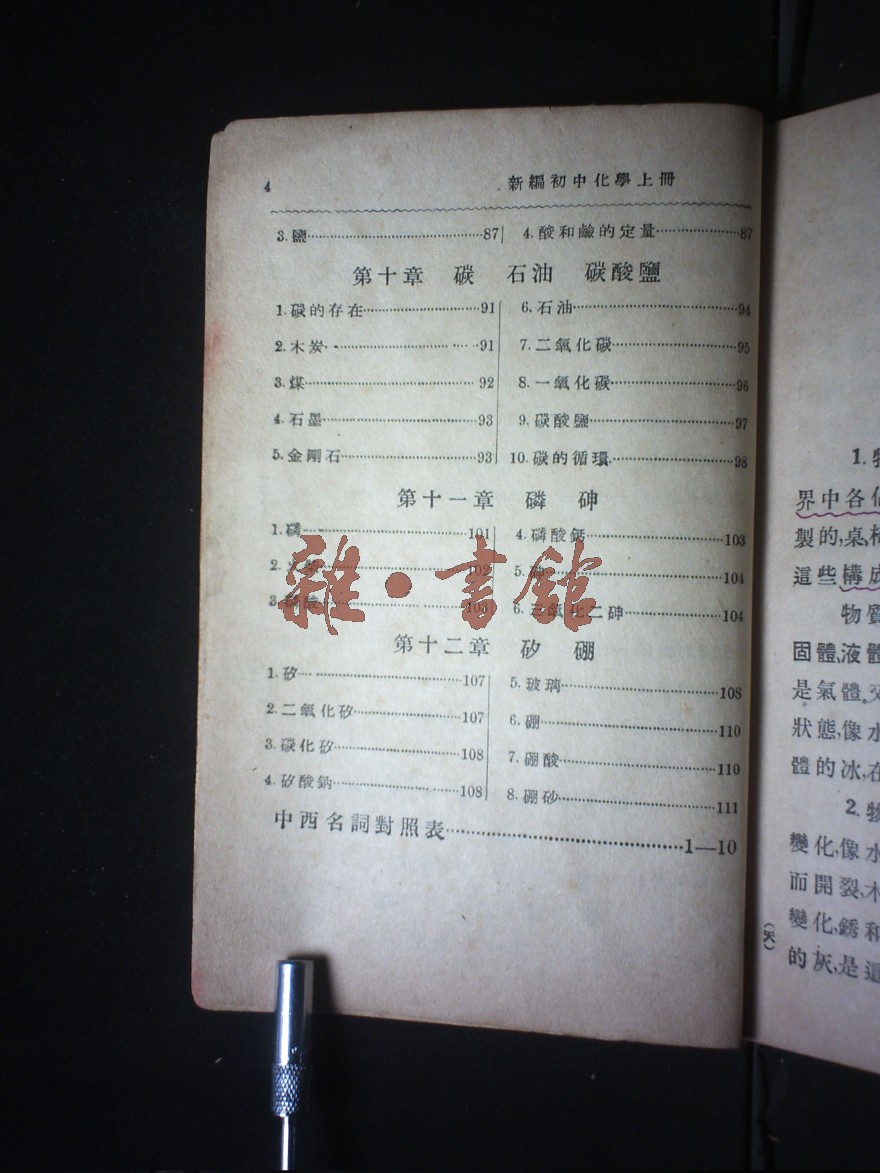 4
新編初中化學上冊
3. 鹽 87
4. 酸和鹼的定量 87
第十章 碳 石油 碳酸鹽
1. 碳的存在 91
2. 木炭 91
3. 煤 92
4. 石墨 93
5. 金剛石 93
6. 石油 94
7. 二氧化碳 95
8. 一氧化碳 96
9. 碳酸鹽 97
10. 碳的循環 98
第十一章 磷 砷
1. 磷 101
2. 102
3. 103
4. 磷酸鈣 103
5. 砷 104
6. 三氧化二砷 104
雜·書館
第十二章 矽 硼
1. 矽 107
2. 二氧化矽 107
3. 碳化矽 108
4. 矽酸鈉 108
5. 玻璃 108
6. 硼 110
7. 硼酸 110
8. 硼砂 111
中西名詞對照表 1—10
1. 物
界中各
製的,桌椅
這些構成
物質
固體,液體
是氣體。
狀態,像水
體的冰,在
2. 物
變化,像水
而開裂,木
變化,銹和
的灰,是這